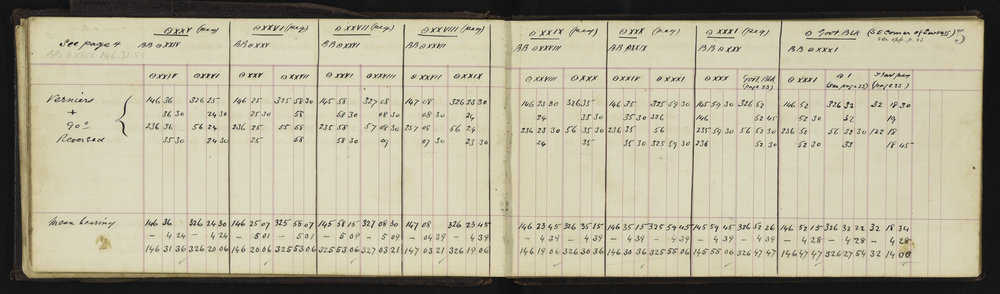 ⊙XXV (peg) ⊙XXVI (peg) ⊙XXVII (peg) ⊙XXVIII (peg) ⊙XXIX (peg) ⊙XXX (peg) ⊙XXXI (peg) ⊙ Govt. Blk (SE Corner of Surress)
See page 4 BB ⊙XXIV BB ⊙XXV BB ⊙XXVI BB ⊙XXVII BB ⊙XXVIII BB ⊙XXIX BB ⊙XXX BB ⊙XXXI
BB ⊙XXIV 146.31.50
⊙XXIV ⊙XXVI ⊙XXV ⊙XXVII ⊙XXVI ⊙XXVIII ⊙XXVII ⊙XXIX ⊙XXVIII ⊙XXX ⊙XXIX ⊙XXXI ⊙XXX Govt. Blk (page 23) ⊙XXXI ⊙ 1 (see page 23)
Verniers 146 36 326 25 146 25 325 58 30 145 58 327 08 147 08 326 23 30 146 23 30 326 35 146 35 325 59 30 145 59 30 326 52 146 52 326 32 32 18 30
+ 36 30 24 30 25 30 58 58 30 08 30 08 30 24 24 35 30 35 30 326 146 52 45 52 30 32 19
90° 236 36 56 24 236 25 55 58 235 58 57 08 30 237 08 56 24 236 23 30 56 35 30 236 35 56 235 59 30 56 52 30 236 52 56 32 30 122 18
Reversed 35 30 24 30 25 58 58 30 09 07 30 23 30 24 35 35 30 325 59 30 236 52 30 52 30 33 18 45
Mean bearing 146 36 326 24 30 146 25 07 325 58 07 145 58 15 327 08 30 147 08 326 23 45 146 23 45 326 35 15 146 35 15 325 59 45 145 59 45 326 52 26 146 52 15 326 32 22 32 18 34
- 4 24 - 4 24 - 5 01 - 5 01 - 5 09 - 5 09 - 04 39 - 4 39 - 4 39 - 4 39 - 4 39 - 4 39 - 4 39 - 4 39 - 4 28 - 4 28 - 4 28
146 31 36 326 20 06 146 20 06 325 53 06 325 53 06 327 03 21 147 03 21 326 19 06 146 19 06 326 30 36 146 30 36 325 55 06 145 55 06 326 47 47 146 47 47 326 27 54 32 14 06